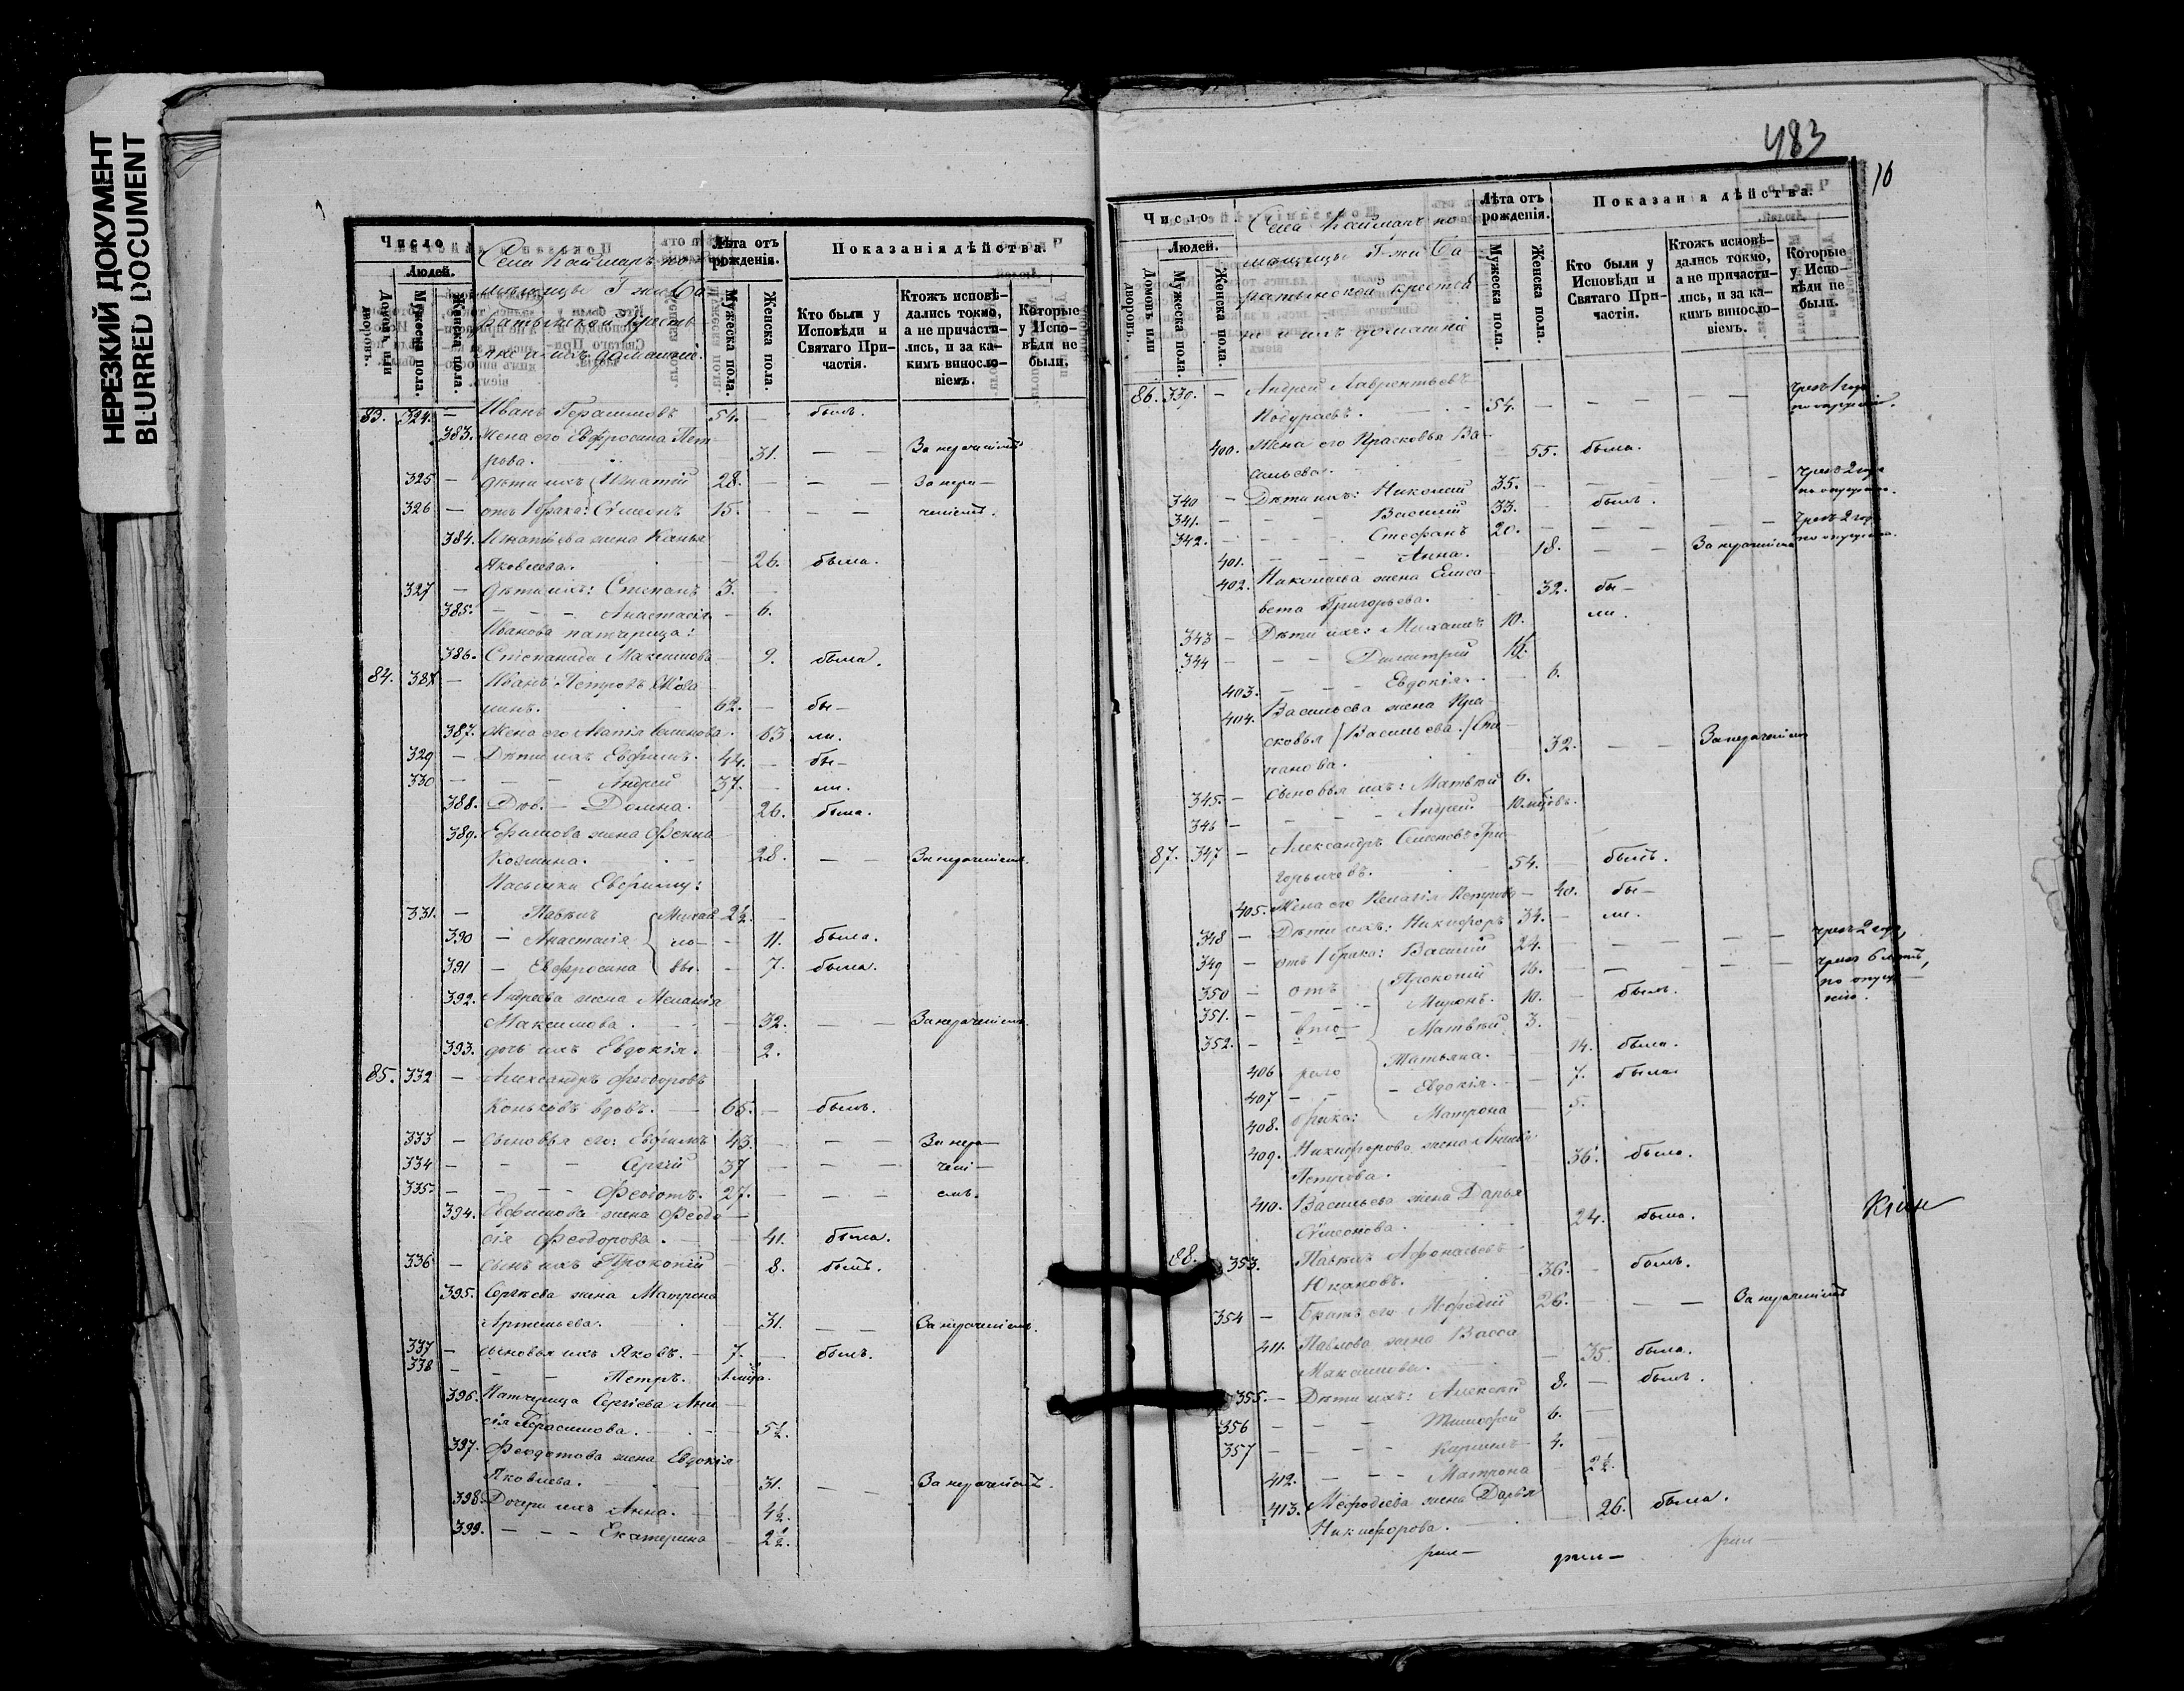 НЕРЕЗКИЙ ДОКУМЕНТ
BLURRED DOCUMENT
Число
Людей.
Домовъ или дворовъ.
Мужеска пола.
Женска пола.
Села Каймаръ по
мѣщицы Г жи Ба
ратынской кресть
яне и ихъ домашніе.
Лѣта отъ рожденія.
Мужеска пола.
Женска пола.
Показанія дѣйства.
Кто были у Исповѣди и Святаго При-частія.
Ктожъ исповѣ-дались токмо, а не причасти-лись, и за ка-кимъ винosло-віемъ.
Которые у Испо-вѣди не были.
83. 324. — Иванъ Герасимовъ 54. — былъ.
383. Жена его Евфросина Пет-
рова. 31. — — За нерачениемъ
325 — Дѣти ихъ Игнатій 28. — — — За нера—
326 — отъ 1 брака: Симеонъ 15. — — — ченіемъ.
384. Игнатьева жена
Яковлева. 26. была.
327 — Дѣти ихъ: Степанъ 3. —
385. — — — Анастасія — 6.
Иванова патчерица:
386. Степанида Максимова — 9. была.
84. 387 — Иванъ Петровъ
62. — бы—
387. Жена его Семенова. 63 ли.
329 — Дѣти ихъ Евфимъ. 44. — бы—
330 — — — Андрей 37. — ли.
388. Домна. 26. была.
389. Ефимова жена Фекла
Козмина. 28. — — За нерачениемъ.
Пасынки Евфиму:
331. — Павелъ Михай 2½. —
390 — Анастасія ло— — 11. была.
391 — Евфросина вы. — 7. была.
392. Андреева жена Меланія
Максимова. 32. — — За нерачениемъ.
393. дочь ихъ Евдокія. — 2.
85. 332 — Александръ Феодоровъ
Коньковъ вдовъ. — 65. — былъ.
333 — Сыновья его: Евфимъ 43. — — — За нера—
334 — — — Сергій 37 — — — чені—
335 — — — Феодотъ. 27. — — — емъ.
394. Евфимова жена Феодо—
сія Феодорова. — 41. была.
336 — сынъ ихъ Прокопій — 8. былъ.
395. Сергѣева жена Матрона
Артемьева. — 31. — — За нерачениемъ.
337 — сыновья ихъ Яковъ. — 7. — былъ.
338 — — — Петръ.
396. Патчерица Сергіева Ани
сія Герасимова. — 5½.
397. Феодотова жена Евдокія
Яковлева. 31. — — За нерачениемъ.
398. Дочери ихъ Анна. — 4½.
399. — — — Екатерина — 2½.
483
16
Число
Людей.
Домовъ или дворовъ.
Мужеска пола.
Женска пола.
Села Каймаръ по
мѣщицы Г жи Ба
ратынской крестья
не и ихъ домашніе
Лѣта отъ рожденія.
Мужеска пола.
Женска пола.
Показанія дѣйства.
Кто были у Исповѣди и Святаго При-частія.
Ктожъ исповѣ-дались токмо, а не причасти-лись, и за ка-кимъ винosло-віемъ.
Которые у Испо-вѣди не были.
86. 339. — Андрей Лаврентьевъ чрезъ 1 годъ
54. — — — — — по опущенію.
400. Жена его Прасковья Ва—
сильева. 55. была.
340 — Дѣти ихъ: Николай 35. — — — — чрезъ 2 года по опущенію.
341. — — — Василій 33. — былъ.
342. — — — Стефанъ 20. — — — — чрезъ 2 года по опущенію.
401. — — — Анна. 18. — — За нерачениемъ
402. Николаева жена Елиса—
вета Григорьева. 32. бы—
343 — Дѣти ихъ: Михаилъ 10. ли.
344 — — — Димитрій
403. — — — Евдокія. — 6.
404. Васильева жена Пра
сковья (Васильева.) Сте—
панова. 32. — — За нерачениемъ
345. — Сыновья ихъ: Матвѣй 6.
346 — — — Андрей
87. 347 — Александръ Семеновъ Гри—
горьичевъ. 54. — былъ.
405. Жена его Пелагія Петрова — 40. бы—
348 — Дѣти ихъ: Никифоръ 34. — ли.
349 — отъ 1 брака: Василій 24. — — — — чрезъ 2 года,
350 — отъ Прокопій 16. — — — — чрезъ 6 лѣтъ, по опуще—нію.
351. — — — Миронъ. 10. — былъ.
352. — вто— Матвѣй 3. —
406 раго Татьяна. — 14. была.
407 — — — Евдокія. — 7. была.
408. брака: Матрона — 5.
409. Никифорова жена
Петрова. 36. была.
410. Васильева жена Дарья
Симеонова. 24. была.
88. 353. Павелъ Афонасьевъ
Юкаковъ. 36. — былъ.
354 — Братъ его Мефодій 26. — — — За нерачениемъ
411. Павлова жена Васса
Максимова. — 35. была.
355. — Дѣти ихъ: Алексѣй 8. — былъ.
356 — — — Тимофей 6. —
357 — — — Кириллъ 4. —
412. — — — Матрона — 2½.
413. Мефодіева жена Дарья
Никифорова. 26. была.